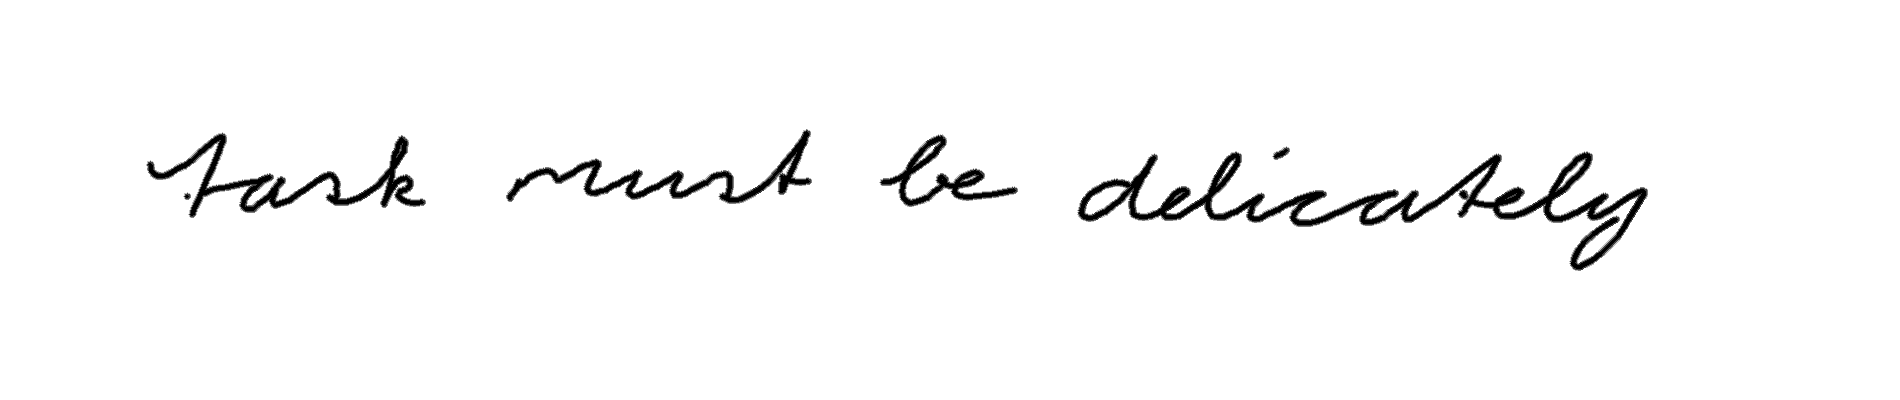 task must be delicately